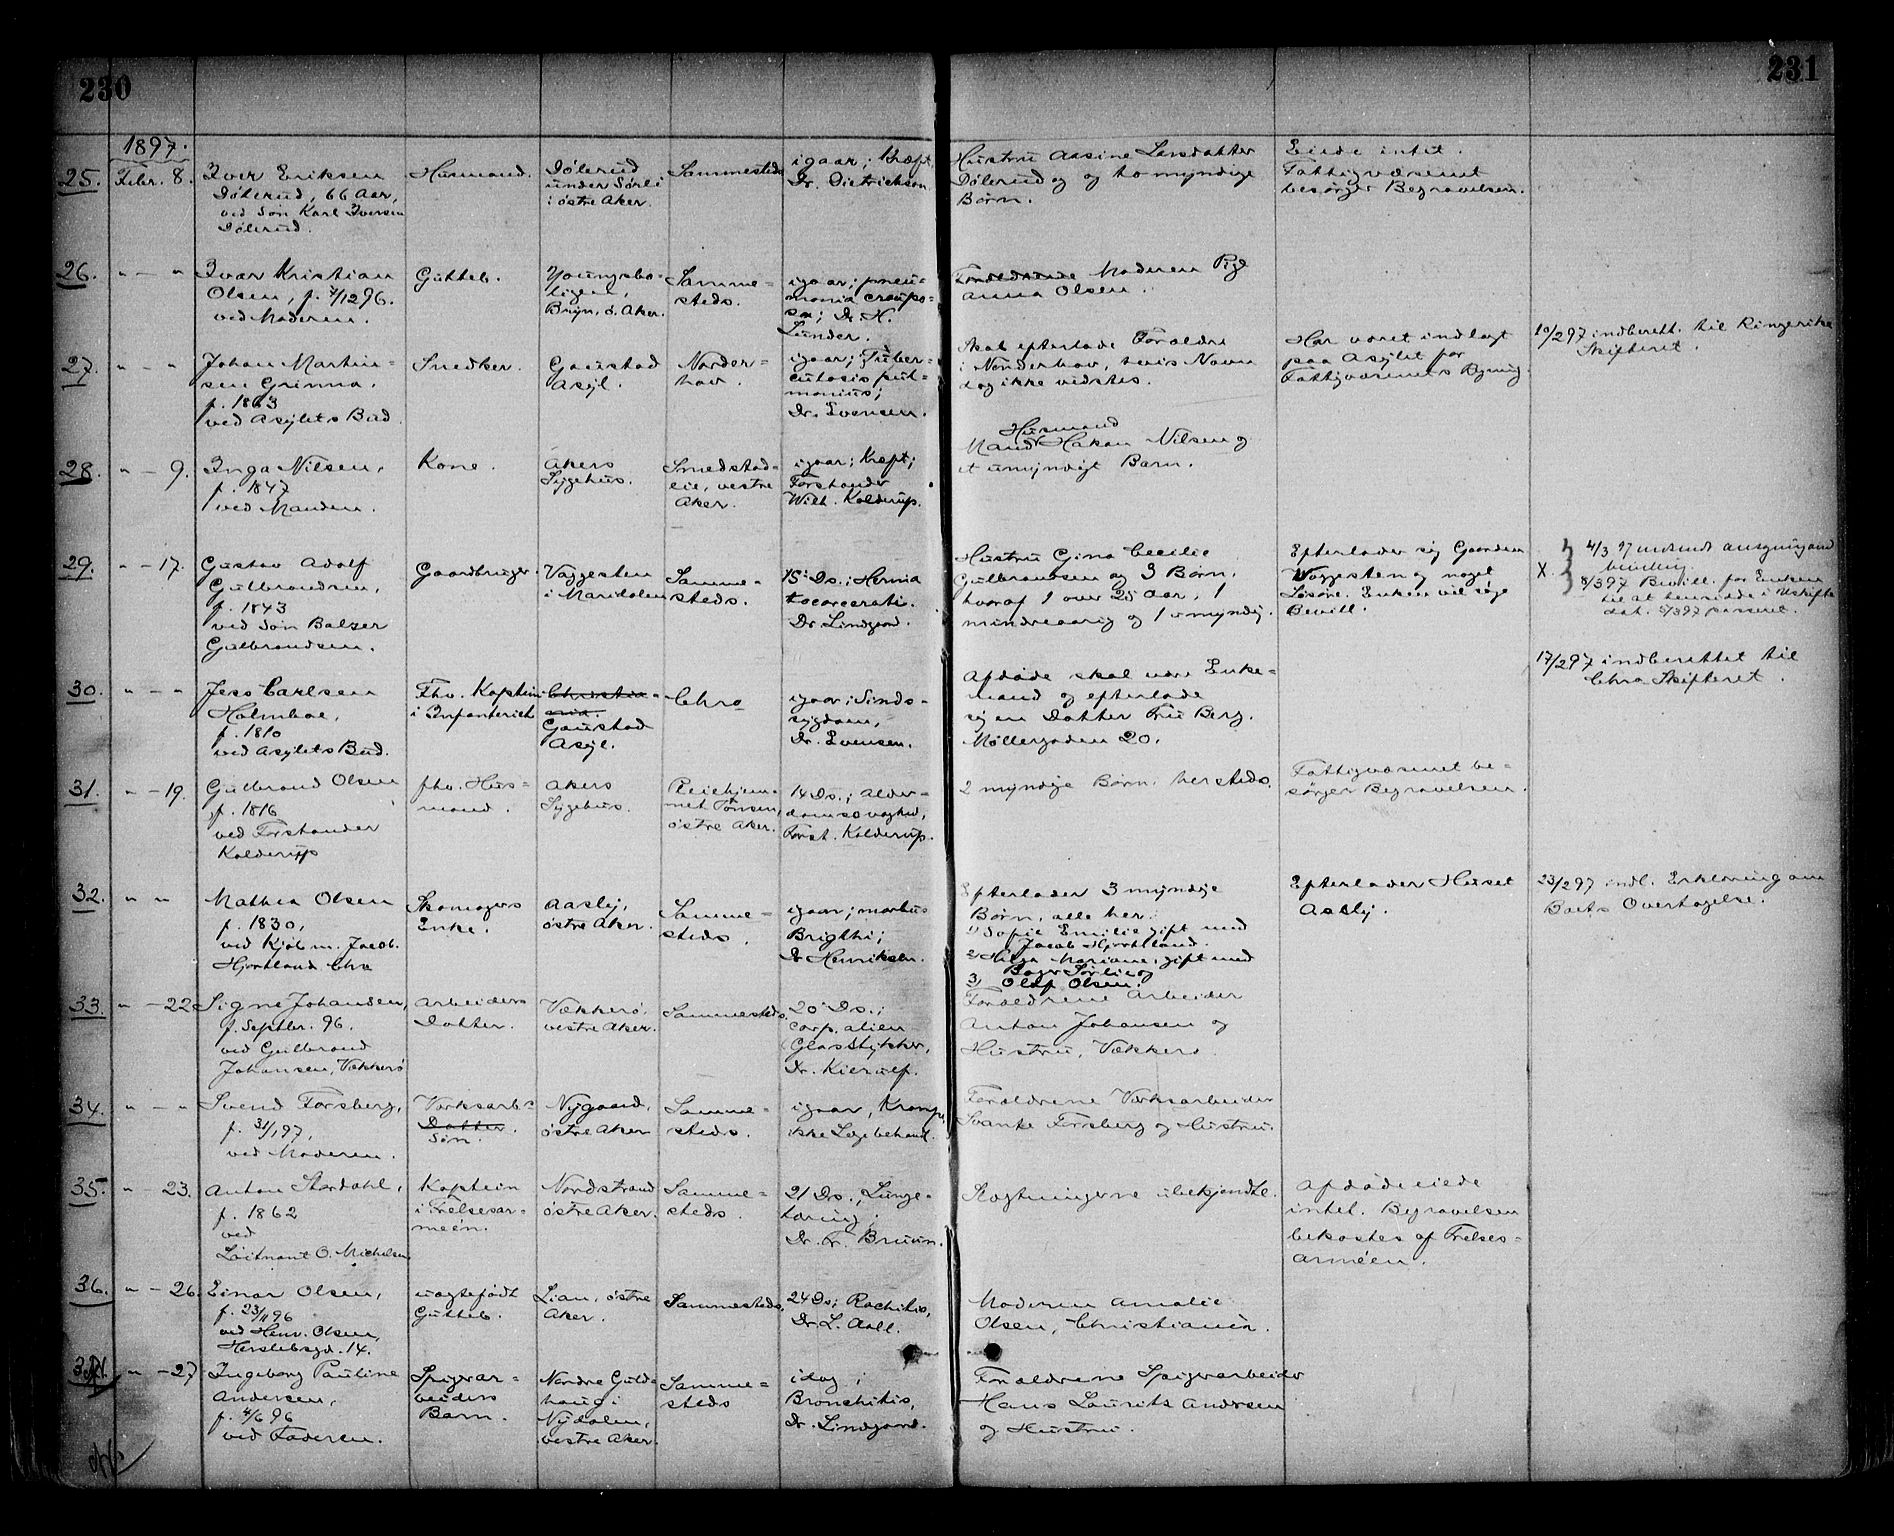 230
231
1897.
25. Febr. 8.
Iver Eriksen
Dölerud, 66 Aar,
ved Søn Karl Iversen
Dölerud.
Husmand.
Dölerud
under Sörli
i östre Aker.
Sammesteds
igaar; Kræft,
Dr. Dietrichson
Hustru Aasine Larsdatter
Dölerud og to myndige
Børn.
Eiede intet.
Fattigvæsenet
besørger Begravelsen.
26. " — "
Ivar Kristian
Olsen, f. 7/12 96.
ved Moderen.
Gutteb.
Youngsbo-
ligen,
Bryn, ö. Aker.
Samme-
steds.
igaar; pneu-
monia croupo-
sa; Dr. H.
Lunder.
Forældrene Moderen Pige
Anna Olsen.
27. " — "
Johan Martin-
sen Grinna,
f. 1863
ved Asylets Bud
Snedker.
Gaustad
Asyl.
Norder-
hov.
igaar; Tuber-
culosis pul-
monius;
Dr. Evensen.
Skal efterlade Forældre
i Norderhov, hvis Navn
dog ikke vidstes.
Har været indlagt
paa Asylet for
Fattigvæsenets Regning.
10/2 97 indberett. til Ringerike
Skifteret.
28. " — 9.
Inga Nilsen,
f. 1847
ved Manden.
Kone.
Akers
Sygehus.
Smedstad-
eie, vestre
Aker.
igaar; Kræft;
Forstander
Wilh. Kolderup.
Husmand
Mand Hakon Nilsen og
et umyndigt Barn.
29. " — 17.
Gustav Adolf
Gulbrandsen,
f. 1843
ved Søn Balzer
Gulbrandsen.
Gaardbruger.
Vaggesten
i Maridalen
Samme-
steds.
15' Ds.; Hernia
incarcerati.
Dr. Lindgaard.
Hustru Gina Cecilie
Gulbrandsen og 3 Børn,
hvoraf 1 over 25 Aar, 1
mindreaarig og 1 umyndig.
Efterlader sig Gaarden
Vaggesten og noget
Løsøre. Enken vil søge
Bevill.
X.
4/3 97 indsendt ansøgning om
bevilling.
8/3 97 Bevill. for Enken
til at hensidde i Uskifte
dat. 5/3 97 passeret.
30. " — "
Jess Carlsen
Holmboe,
f. 1810
ved Asylets Bud.
Fhv. Kaptein
i Infanteriet
Christia-
nia.
Gaustad
Asyl.
Chra
igaar; Sinds-
sygdom,
Dr. Evensen.
Afdøde skal være Enke-
mand og efterlade
sig en Datter Fru Berg,
Møllergaden 20.
17/2 97 indberettet til
Chra Skifteret.
31. " — 19.
Gulbrand Olsen
f. 1816
ved Forstander
Kolderup
fhv. Hus-
mand.
Akers
Sygehus.
Pleiehjem-
met Tonsen,
östre Aker.
14 Ds.; Alder-
domssvaghed,
Forst. Kolderup.
2 myndige Børn hersteds.
Fattigvæsenet be-
sørger Begravelsen.
32. " "
Mathea Olsen
f. 1830,
ved Kjøbm. Jacob
Hjortland Chra
Skomagers
Enke.
Aasly,
östre Aker.
Samme-
steds.
igaar; morbus
Brigthi;
Dr Henriksen.
Efterlader 3 myndige
Børn, alle her:
1) Sofie Emilie gift med
Jacob Hjortland.
2) Helga Mariane, gift med
Bager Sørlie og
3) Olaf Olsen.
Efterlader Huset
Aasly.
23/2 97 indl. Erklæring om
Boets Overtagelse.
33. " — 22
Signe Johansen,
f. Septbr. 96.
ved Gulbrand
Johansen, Vækkerö
Arbeiders
Datter.
Vækkerö,
vestre Aker.
Sammesteds.
20' Ds.;
corp. alien
Glasstykker,
Dr. Kierulf.
Forældrene Arbeider
Anton Johansen og
Hustru, Vækkerö.
34. " — "
Svend Forsberg,
f. 31/1 97,
ved Moderen.
Værksarb-
Datter.
Søn.
Nygaard,
östre Aker
Samme-
steds.
igaar, Krampe,
ikke Lægebehand.
Forældrene Værksarbeider
Svante Forsberg og Hustru.
35. " — 23.
Anton Stordahl,
f. 1862
ved
Løitnant O. Michelsen
Kaptein
i Frelsesar-
meén.
Nordstrand
östre Aker.
Samme-
steds.
21 Ds., Lunge-
tæring;
Dr. Fr. Bruun.
Slægtningerne ubekjendte.
Afdøde eiede
intet. Begravelsen
bekostes af Frelses-
Arméen.
36. " — 26.
Einar Olsen,
f. 23/11 96
ved Henr. Olsen,
Herslebsgd. 14.
uægtefødt
Gutteb.
Lian, östre
Aker.
Sammesteds.
24 Ds; Rachitis,
Dr. L. Aall.
Moderen Amalie
Olsen, Christiania.
37. " — 27
Ingeborg Pauline
Andersen,
f. 4/6 96
ved Faderen.
Spigerar-
beiders
Barn.
Nordre Guld-
haug i
Nydalen,
vestre Aker.
Samme-
steds
idag;
Bronchitis,
Dr. Lindgaard.
Forældrene Spigerarbeider
Hans Laurits Andersen
og Hustru.